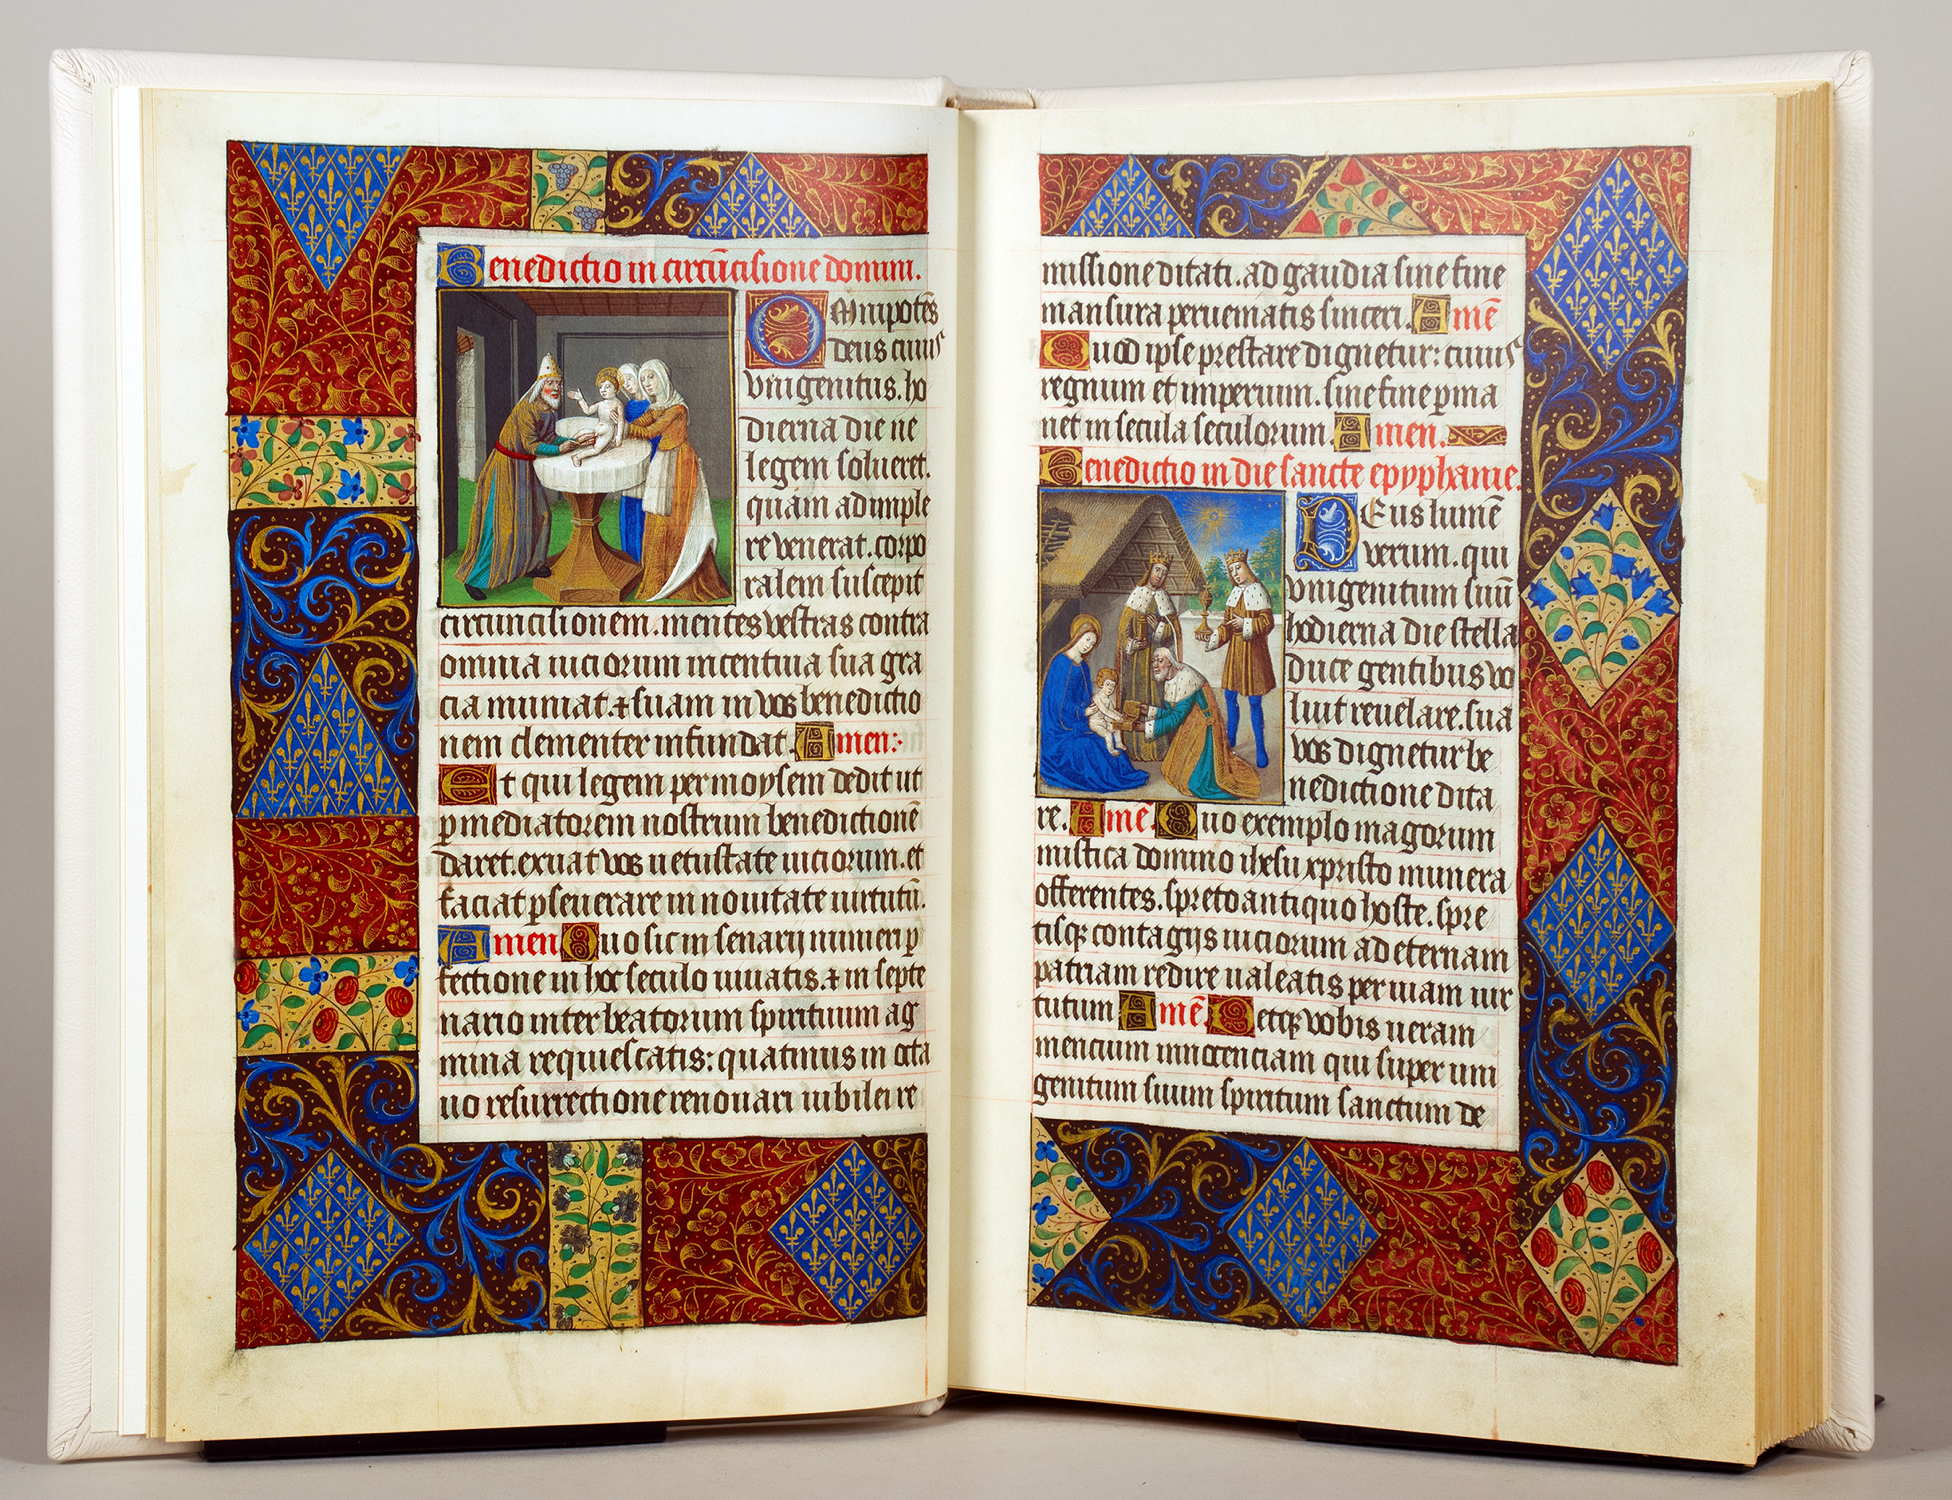 Benedictio in circūcisione domini.
Omnipotēs
deus cuius
vnigenitus. ho
dierna die ne
legem solueret.
quam adimple
re venerat. corpo
ralem suscepit
circuncisionem. mentes vestras contra
omnia uiciorum incentiua sua gra
cia muniat. ⁊ suam in vos benedictio
nem clementer infundat. Amen:
Et qui legem per moysem dedit ut
ꝑ mediatorem nostrum benedictionē
daret. exuat vos uetustate uiciorum. et
faciat ꝑseuerare in nouitate uirtutū.
Amen Quo sic in senarij numeri ꝑ
fectione in hoc seculo uiuatis. ⁊ in septe
nario inter beatorum spirituum ag
mina requiescatis: quatinus in octa
uo resurrectione renouati iubilei re
missione ditati. ad gaudia sine fine
mansura perueniatis sinceri. Amē
Quod ipse prestare dignetur: cuius
regnum et imperium. sine fine ꝑma
net in secula seculorum. Amen.
Benedictio in die sancte epyphanie.
Deus lumē
verum. qui
vnigenitum suū
hodierna die stella
duce gentibus vo
luit reuelare. sua
vos dignetur be
nedictione dita
re. Amē. Quo exemplo magorum
mistica domino ihesu xpristo munera
offerentes. spreto antiquo hoste. spre
tisqꝫ contagijs uiciorum ad eternam
patriam redire ualeatis per uiam uir
tutum Amē. Detqꝫ vobis ueram
mencium innocenciam qui super uni
genitum suum spiritum sanctum de